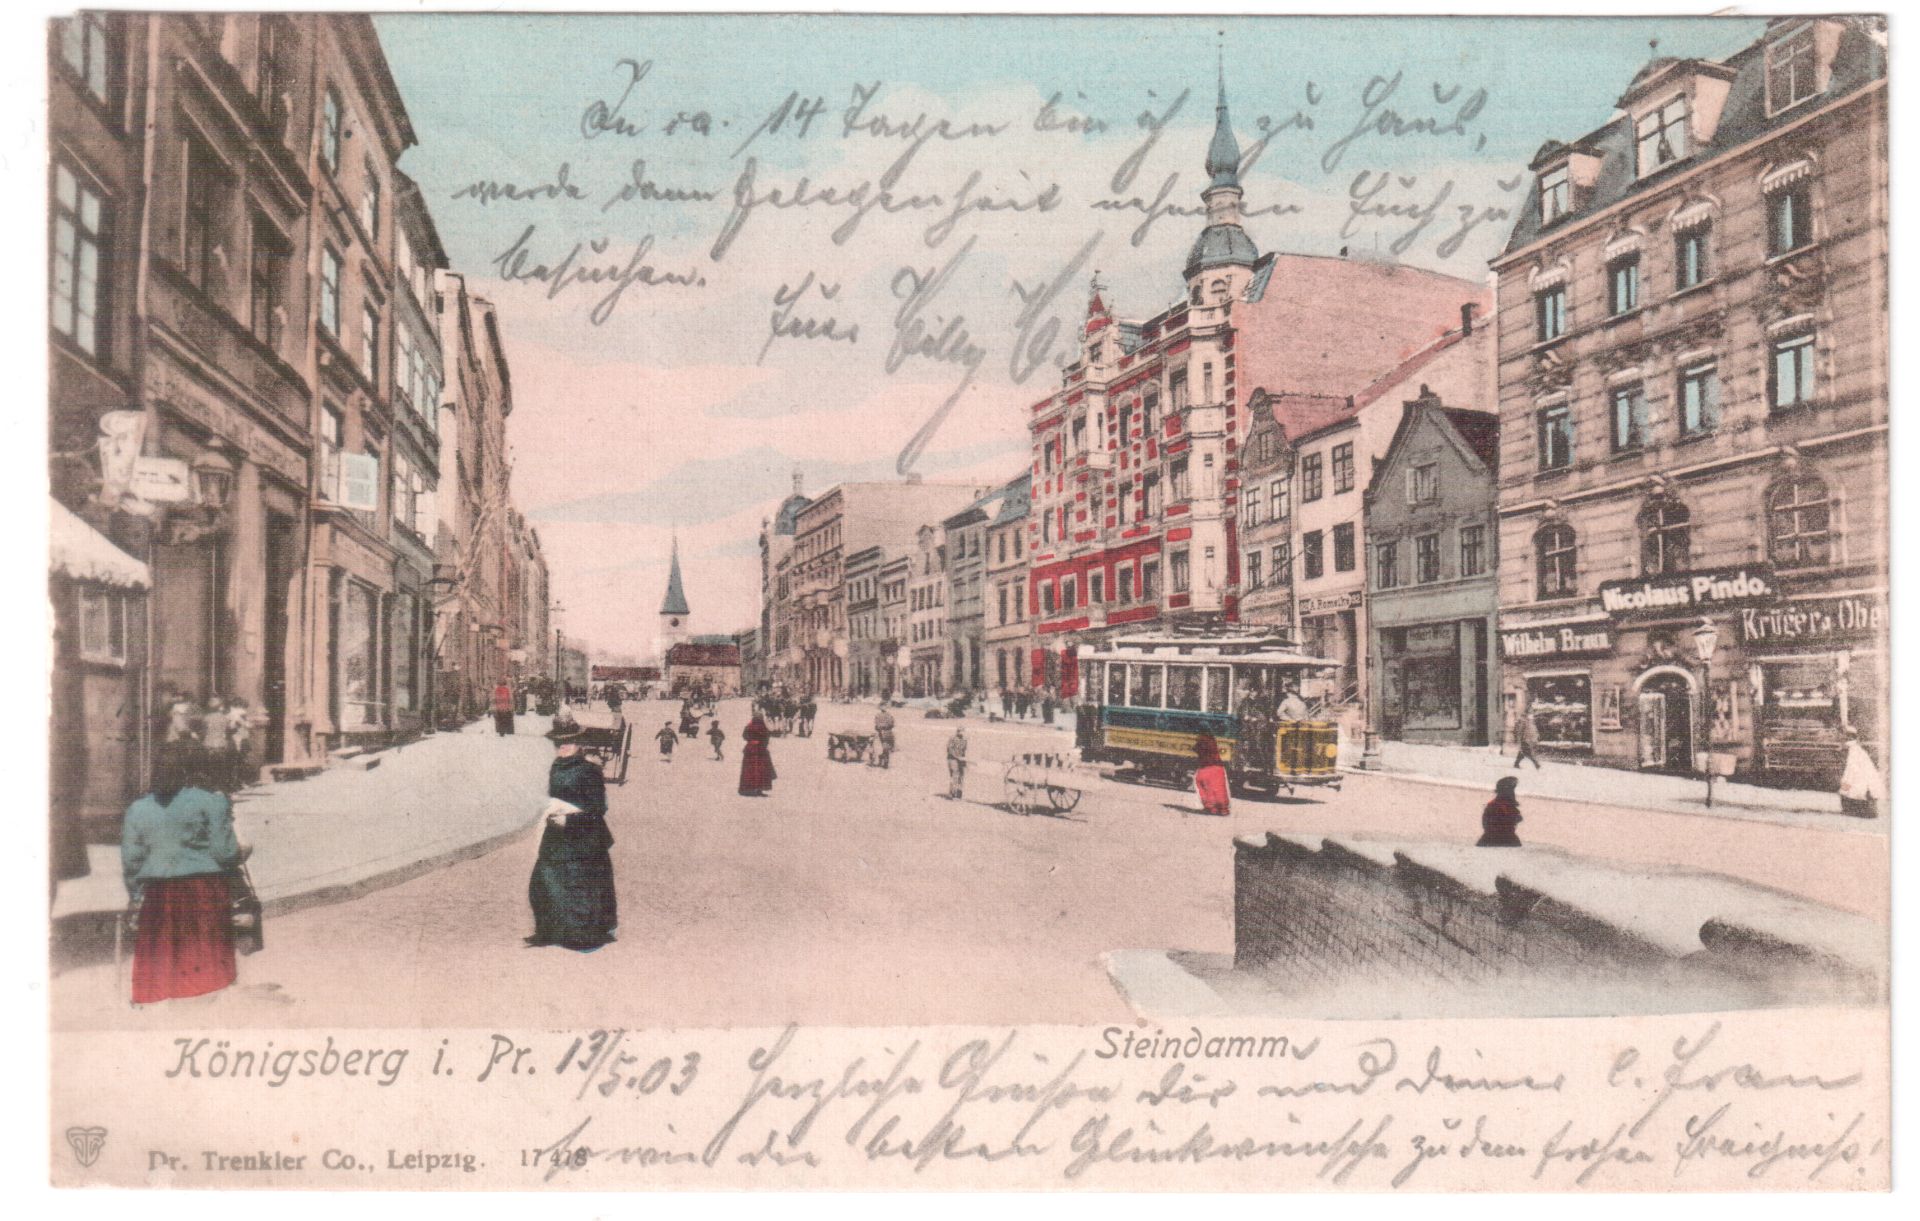 In ca. 14 Tagen bin ich zu Haus,
werde dann Gelegenheit nehmen Euch zu
besuchen.
Euer Willy W.
A. Romeike
Nicolaus Pindo.
Krüger & Obe
Wilhelm Braun
Königsberg i. Pr. 13/5.03
Steindamm
Herzliche Grüße Dir und Deiner l. Frau
sowie die besten Glückwünsche zu dem frohen Ereigniß!
Dr. Trenkler Co., Leipzig. 17478